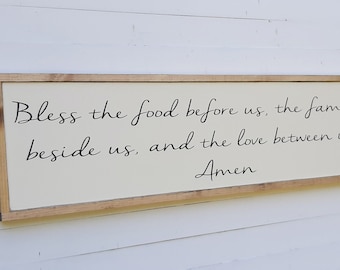 Bless the food before us, the fam
beside us, and the love between
Amen